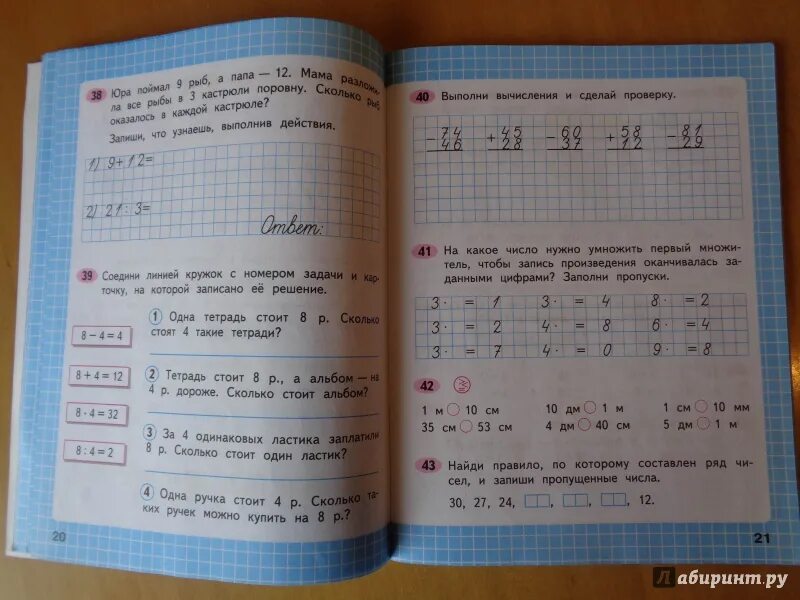 38 Юра поймал 9 рыб, а папа — 12. Мама разложи-
ла все рыбы в 3 кастрюли поровну. Сколько рыб
оказалось в каждой кастрюле?
Запиши, что узнаешь, выполнив действия.
1) 9+12=
2) 21:3=
Ответ:
39 Соедини линией кружок с номером задачи и кар-
точку, на которой записано её решение.
8 − 4 = 4
8 + 4 = 12
8 · 4 = 32
8 : 4 = 2
1 Одна тетрадь стоит 8 р. Сколько
стоят 4 такие тетради?
2 Тетрадь стоит 8 р., а альбом — на
4 р. дороже. Сколько стоит альбом?
3 За 4 одинаковых ластика заплатили
8 р. Сколько стоит один ластик?
4 Одна ручка стоит 4 р. Сколько та-
ких ручек можно купить на 8 р.?
20
40 Выполни вычисления и сделай проверку.
−74 +45 −60 +58 −81
46 28 37 12 29
41 На какое число нужно умножить первый множи-
тель, чтобы запись произведения оканчивалась за-
данными цифрами? Заполни пропуски.
3· = 1 3· = 4 8· = 2
3· = 2 4· = 8 6· = 4
3· = 7 4· = 0 9· = 8
42
1 м 10 см 10 дм 1 м 1 см 10 мм
35 см 53 см 4 дм 40 см 5 дм 1 м
43 Найди правило, по которому составлен ряд чи-
сел, и запиши пропущенные числа.
30, 27, 24, , , , 12.
21
Лабиринт.ру